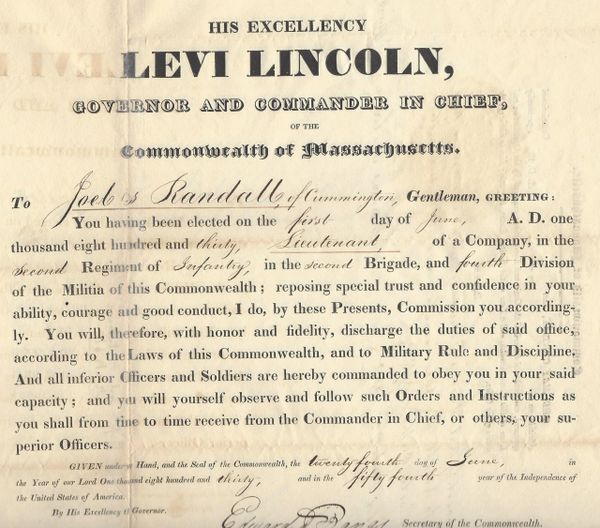 HIS EXCELLENCY
LEVI LINCOLN,
GOVERNOR AND COMMANDER IN CHIEF,
OF THE
Commonwealth of Massachusetts.
To Joel S Randall of Cummington, Gentleman, GREETING:
You having been elected on the first day of June, A. D. one
thousand eight hundred and thirty, Lieutenant, of a Company, in the
second Regiment of Infantry, in the second Brigade, and fourth Division
of the Militia of this Commonwealth; reposing special trust and confidence in your
ability, courage and good conduct, I do, by these Presents, Commission you according-
ly. You will, therefore, with honor and fidelity, discharge the duties of said office,
according to the Laws of this Commonwealth, and to Military Rule and Discipline.
And all inferior Officers and Soldiers are hereby commanded to obey you in your said
capacity; and you will yourself observe and follow such Orders and Instructions as
you shall from time to time receive from the Commander in Chief, or others, your su-
perior Officers.
GIVEN under my Hand, and the Seal of the Commonwealth, the twenty fourth day of June, in
the Year of our Lord One thousand eight hundred and thirty, and in the fifty fourth year of the Independence of
the United States of America.
By His Excellency the Governor.
Edward D Bangs Secretary of the Commonwealth.